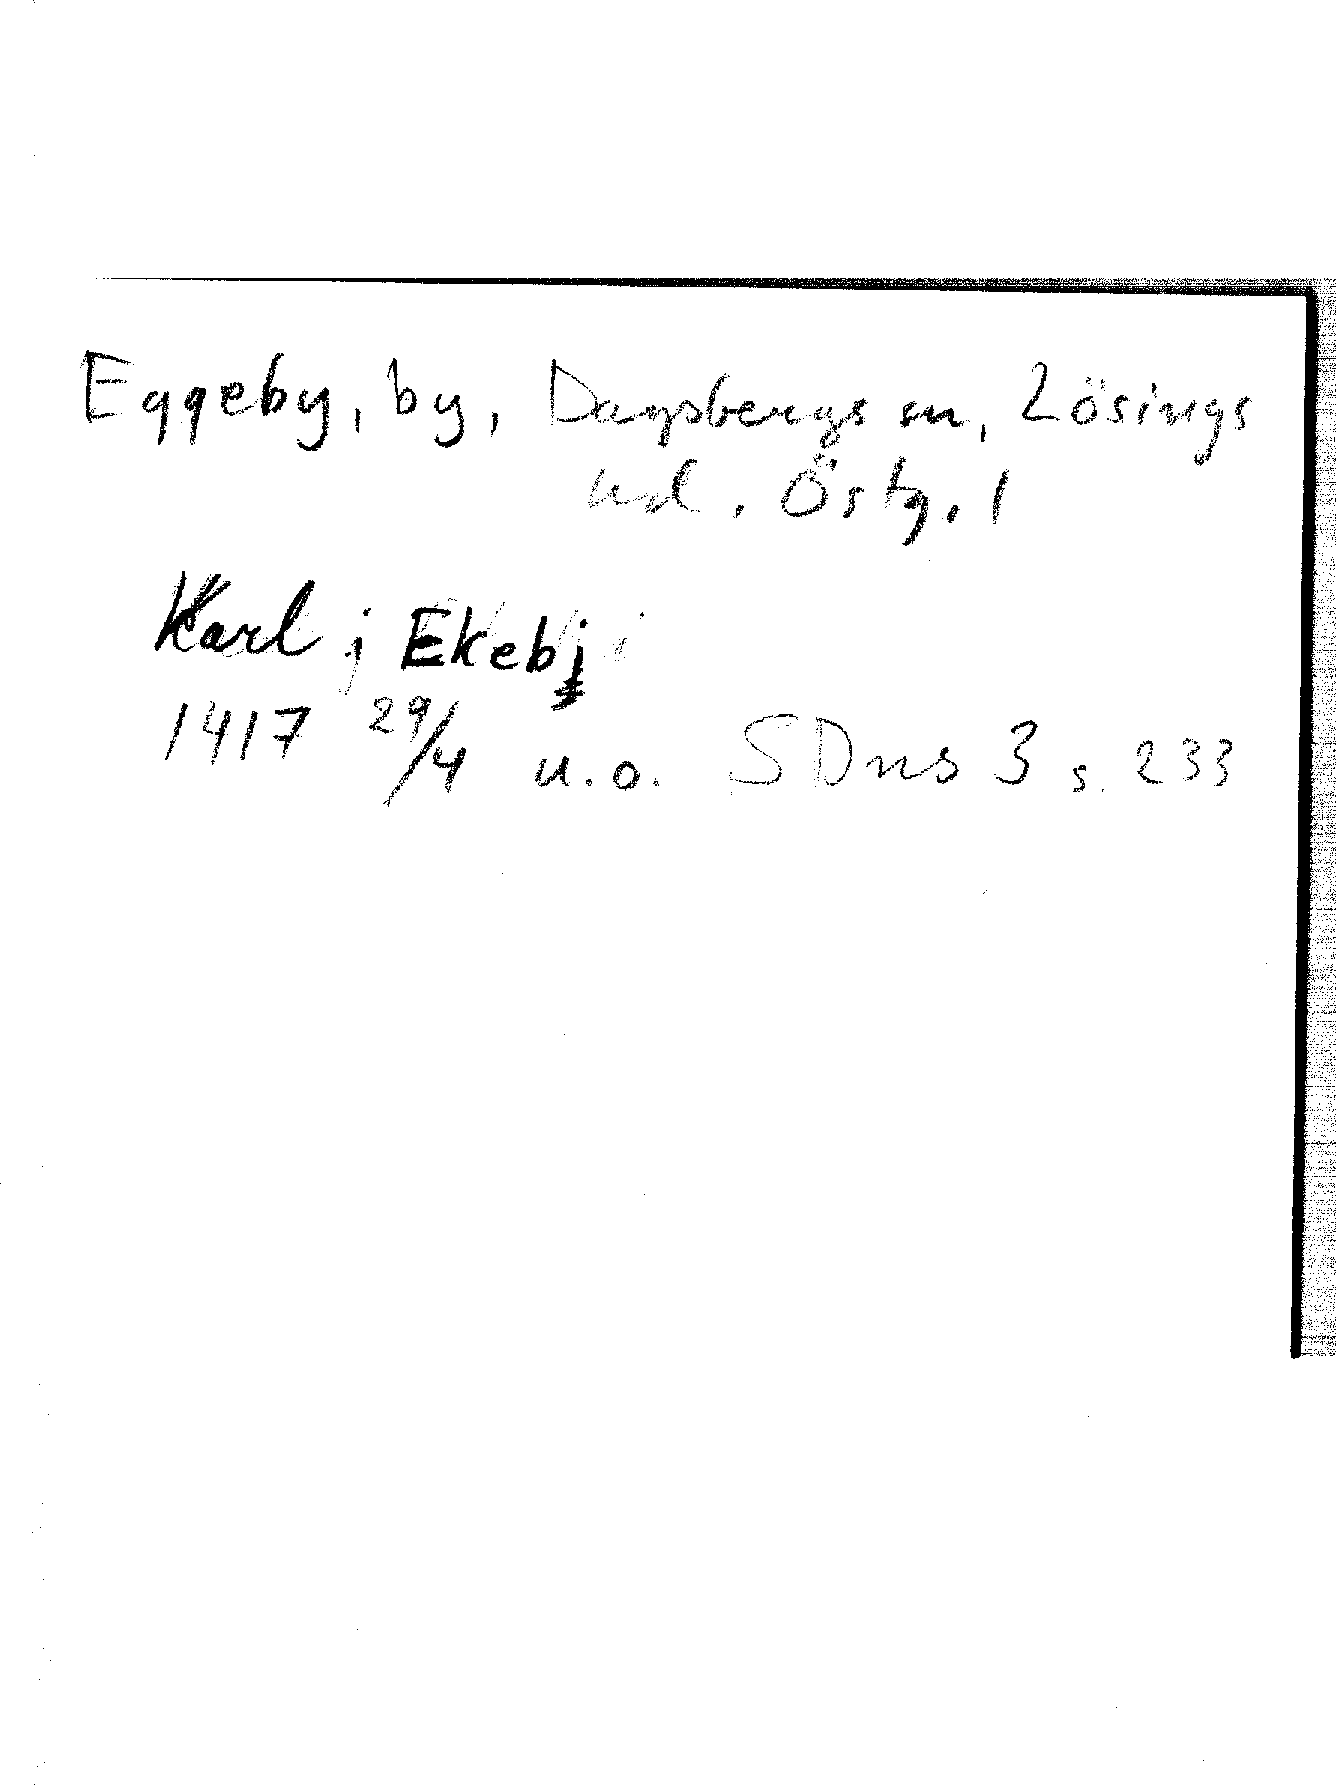 Eggeby, by, Dagsbergs sn, Lösings
hd. Östg. l
Karl j Ekebj
1417 29/4 u.o. SDns 3 s. 233